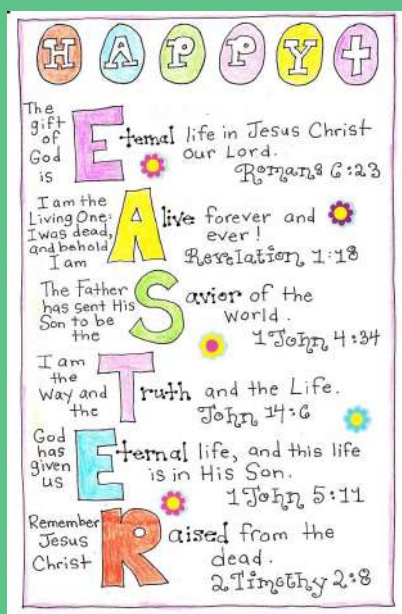 HAPPY
The
gift
of
God
is
Eternal life in Jesus Christ
our Lord.
Romans 6:23
I am the
Living One:
I was dead,
and behold
I am
Alive forever and
ever!
Revelation 1:18
The Father
has sent His
Son to be
the
Savior of the
world.
1 John 4:34
I am
the
Way and
the
Truth and the Life.
John 14:6
God
has
given
us
Eternal life, and this life
is in His Son.
1 John 5:11
Remember
Jesus
Christ
Raised from the
dead.
2 Timothy 2:8